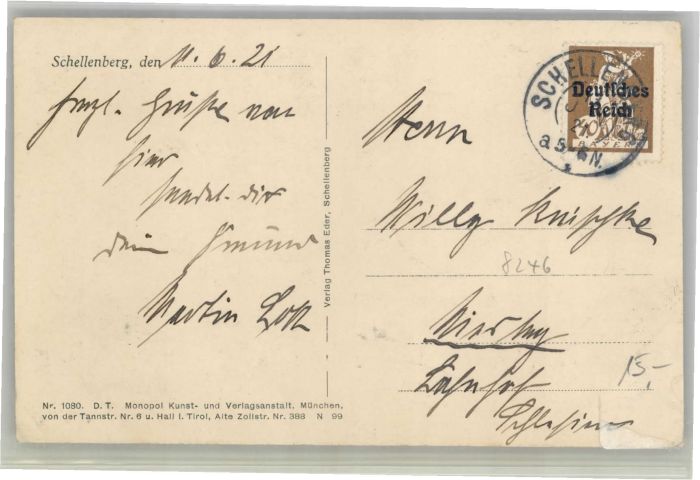 Schellenberg, den 11. 6. 21
herzl. Grüße von
hier
sendet dir
dein Freund
Martin Lott
Verlag Thomas Eder, Schellenberg
Nr. 1080. D. T. Monopol Kunst- und Verlagsanstalt. München,
von der Tannstr. Nr. 6 u. Hall i. Tirol, Alte Zollstr. Nr. 388 N 99
Deutsches
Reich
BAYERN
SCHELLENBERG
Herrn
Willy
8246
Bahnhof
Schlesien
15,-